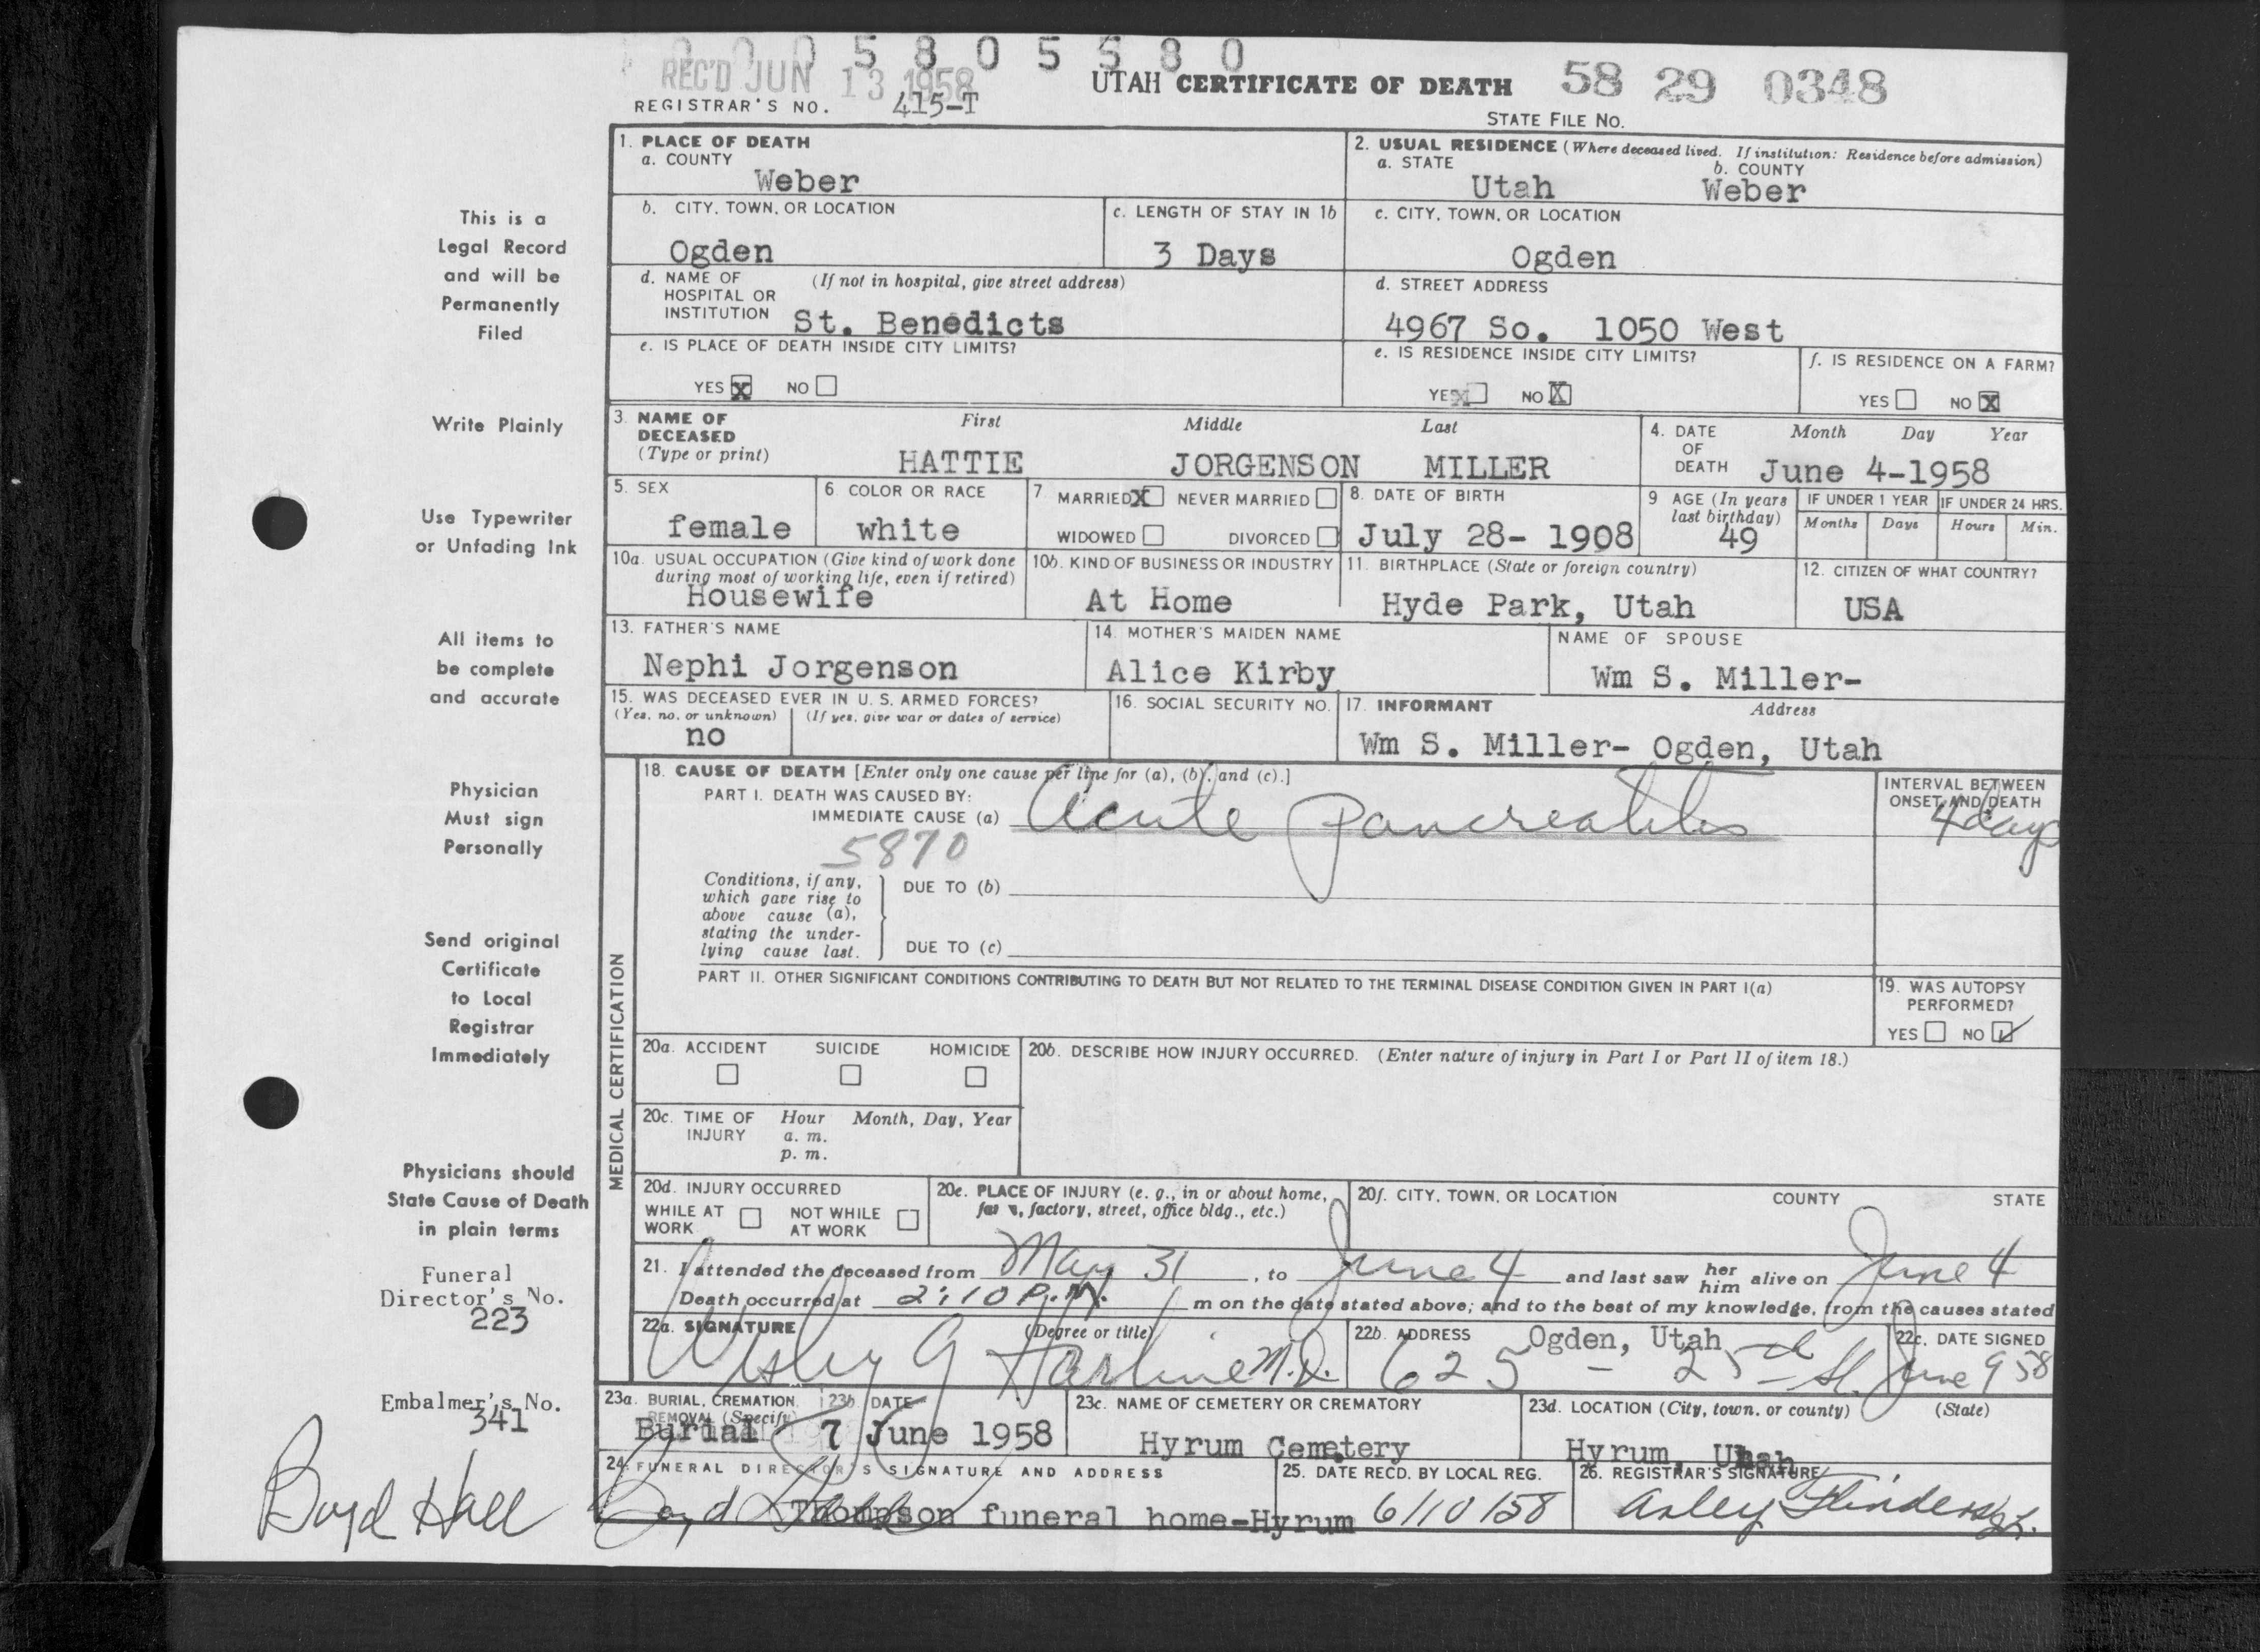 0005805580
REC'D JUN 13 1958
UTAH CERTIFICATE OF DEATH 58 29 0348
REGISTRAR'S NO. 415-T
STATE FILE NO.
1. PLACE OF DEATH
a. COUNTY
Weber
2. USUAL RESIDENCE (Where deceased lived. If institution: Residence before admission)
a. STATE b. COUNTY
Utah Weber
b. CITY, TOWN, OR LOCATION
Ogden
c. LENGTH OF STAY IN 1b
3 Days
c. CITY, TOWN, OR LOCATION
Ogden
d. NAME OF HOSPITAL OR INSTITUTION (If not in hospital, give street address)
St. Benedicts
d. STREET ADDRESS
4967 So. 1050 West
e. IS PLACE OF DEATH INSIDE CITY LIMITS?
YES X NO
e. IS RESIDENCE INSIDE CITY LIMITS?
YES NO X
f. IS RESIDENCE ON A FARM?
YES NO X
3. NAME OF DECEASED (Type or print)
First Middle Last
HATTIE JORGENSON MILLER
4. DATE OF DEATH
Month Day Year
June 4-1958
5. SEX
female
6. COLOR OR RACE
white
7. MARRIED X NEVER MARRIED
WIDOWED DIVORCED
8. DATE OF BIRTH
July 28- 1908
9 AGE (In years last birthday)
49
IF UNDER 1 YEAR
Months Days
IF UNDER 24 HRS.
Hours Min.
10a. USUAL OCCUPATION (Give kind of work done during most of working life, even if retired)
Housewife
10b. KIND OF BUSINESS OR INDUSTRY
At Home
11. BIRTHPLACE (State or foreign country)
Hyde Park, Utah
12. CITIZEN OF WHAT COUNTRY?
USA
13. FATHER'S NAME
Nephi Jorgenson
14. MOTHER'S MAIDEN NAME
Alice Kirby
NAME OF SPOUSE
Wm S. Miller-
15. WAS DECEASED EVER IN U. S. ARMED FORCES?
(Yes, no, or unknown) (If yes, give war or dates of service)
no
16. SOCIAL SECURITY NO.
17. INFORMANT Address
Wm S. Miller- Ogden, Utah
MEDICAL CERTIFICATION
18. CAUSE OF DEATH [Enter only one cause per line for (a), (b), and (c).]
PART I. DEATH WAS CAUSED BY:
IMMEDIATE CAUSE (a) Acute Pancreatitis
5870
INTERVAL BETWEEN ONSET AND DEATH
4 days
Conditions, if any, which gave rise to above cause (a), stating the underlying cause last.
DUE TO (b)
DUE TO (c)
PART II. OTHER SIGNIFICANT CONDITIONS CONTRIBUTING TO DEATH BUT NOT RELATED TO THE TERMINAL DISEASE CONDITION GIVEN IN PART I(a)
19. WAS AUTOPSY PERFORMED?
YES NO ✓
20a. ACCIDENT SUICIDE HOMICIDE
20b. DESCRIBE HOW INJURY OCCURRED. (Enter nature of injury in Part I or Part II of item 18.)
20c. TIME OF INJURY
Hour Month, Day, Year
a. m.
p. m.
20d. INJURY OCCURRED
WHILE AT WORK NOT WHILE AT WORK
20e. PLACE OF INJURY (e. g., in or about home, farm, factory, street, office bldg., etc.)
20f. CITY, TOWN, OR LOCATION COUNTY STATE
21. I attended the deceased from May 31, to June 4 and last saw her him alive on June 4
Death occurred at 2:10 P.M. m on the date stated above; and to the best of my knowledge, from the causes stated
22a. SIGNATURE (Degree or title)
Wesley G Harline M.D.
22b. ADDRESS
Ogden, Utah
625 - 25th St.
22c. DATE SIGNED
June 9 58
23a. BURIAL, CREMATION, REMOVAL (Specify)
Burial
23b. DATE
7 June 1958
23c. NAME OF CEMETERY OR CREMATORY
Hyrum Cemetery
23d. LOCATION (City, town, or county) (State)
Hyrum, Utah
24. FUNERAL DIRECTOR'S SIGNATURE AND ADDRESS
Boyd Hall Thompson funeral home-Hyrum
25. DATE RECD. BY LOCAL REG.
6/10/58
26. REGISTRAR'S SIGNATURE
Arley Flinders
This is a
Legal Record
and will be
Permanently
Filed
Write Plainly
Use Typewriter
or Unfading Ink
All items to
be complete
and accurate
Physician
Must sign
Personally
Send original
Certificate
to Local
Registrar
Immediately
Physicians should
State Cause of Death
in plain terms
Funeral
Director's No.
223
Embalmer's No.
341
Boyd Hall